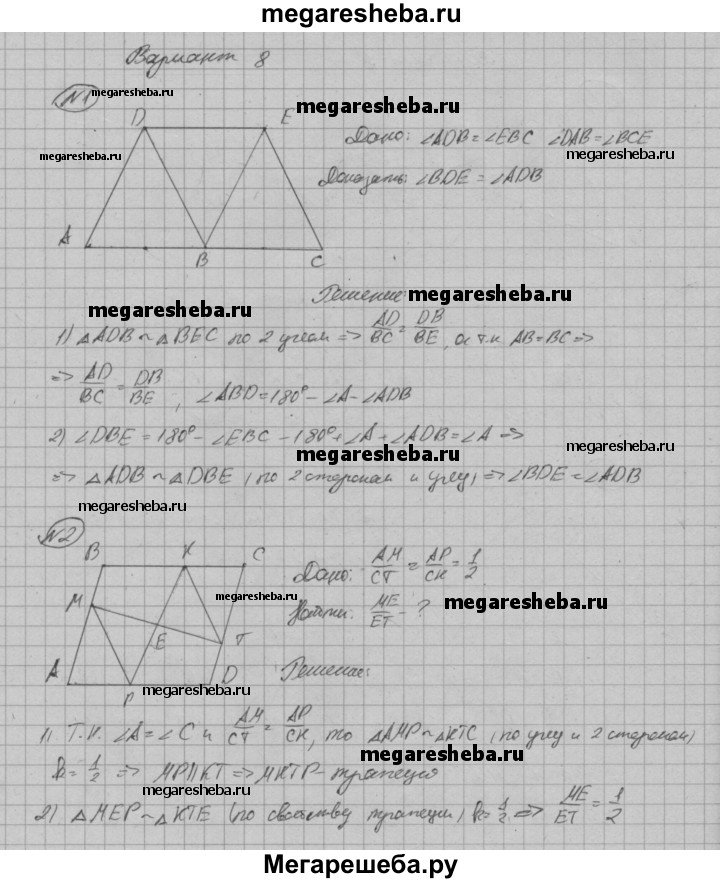 megaresheba.ru
Вариант 8
№1 megaresheba.ru
D E
megaresheba.ru
Дано: ∠ADB = ∠EBC ∠DAB = ∠BCE
megaresheba.ru megaresheba.ru
Доказать: ∠BDE = ∠ADB
A B C
Решение: megaresheba.ru
megaresheba.ru
1) △ADB ~ △BEC по 2 углам => AD/BC = DB/BE, а т.к. AB = BC =>
=> AD/BC = DB/BE, ∠ABD = 180° - ∠A - ∠ADB
2) ∠DBE = 180° - ∠EBC - 180° + ∠A + ∠ADB = ∠A =>
megaresheba.ru megaresheba.ru
=> △ADB ~ △DBE (по 2 сторонам и углу) => ∠BDE = ∠ADB
megaresheba.ru
№2
B K C
Дано: AM/CT = AP/CK = 1/2
megaresheba.ru
M
Найти: ME/ET - ? megaresheba.ru
E T
A P D
Решение:
megaresheba.ru
1) Т.к. ∠A = ∠C и AM/CT = AP/CK, то △AMP ~ △KTC (по углу и 2 сторонам)
megaresheba.ru
k = 1/2 => MP||KT => MKTP - трапеция
megaresheba.ru
2) △MEP ~ △KTE (по свойству трапеции) k = 1/2 => ME/ET = 1/2
megaresheba.ru
Мегарешеба.ру